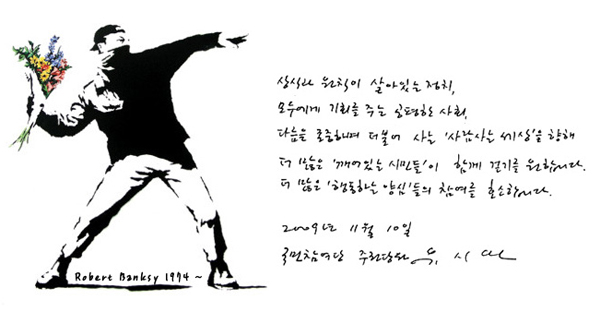 상식과 원칙이 살아있는 정치,
모두에게 기회를 주는 공평한 사회,
다름을 존중하며 더불어 사는 '사람사는 세상'을 향해
더 많은 '깨어있는 시민들'이 함께 걷기를 원합니다.
더 많은 '행동하는 양심'들의 참여를 호소합니다.
2009년 11월 10일
국민참여당 주권당원 유 시 민
Robert Banksy 1974 ~